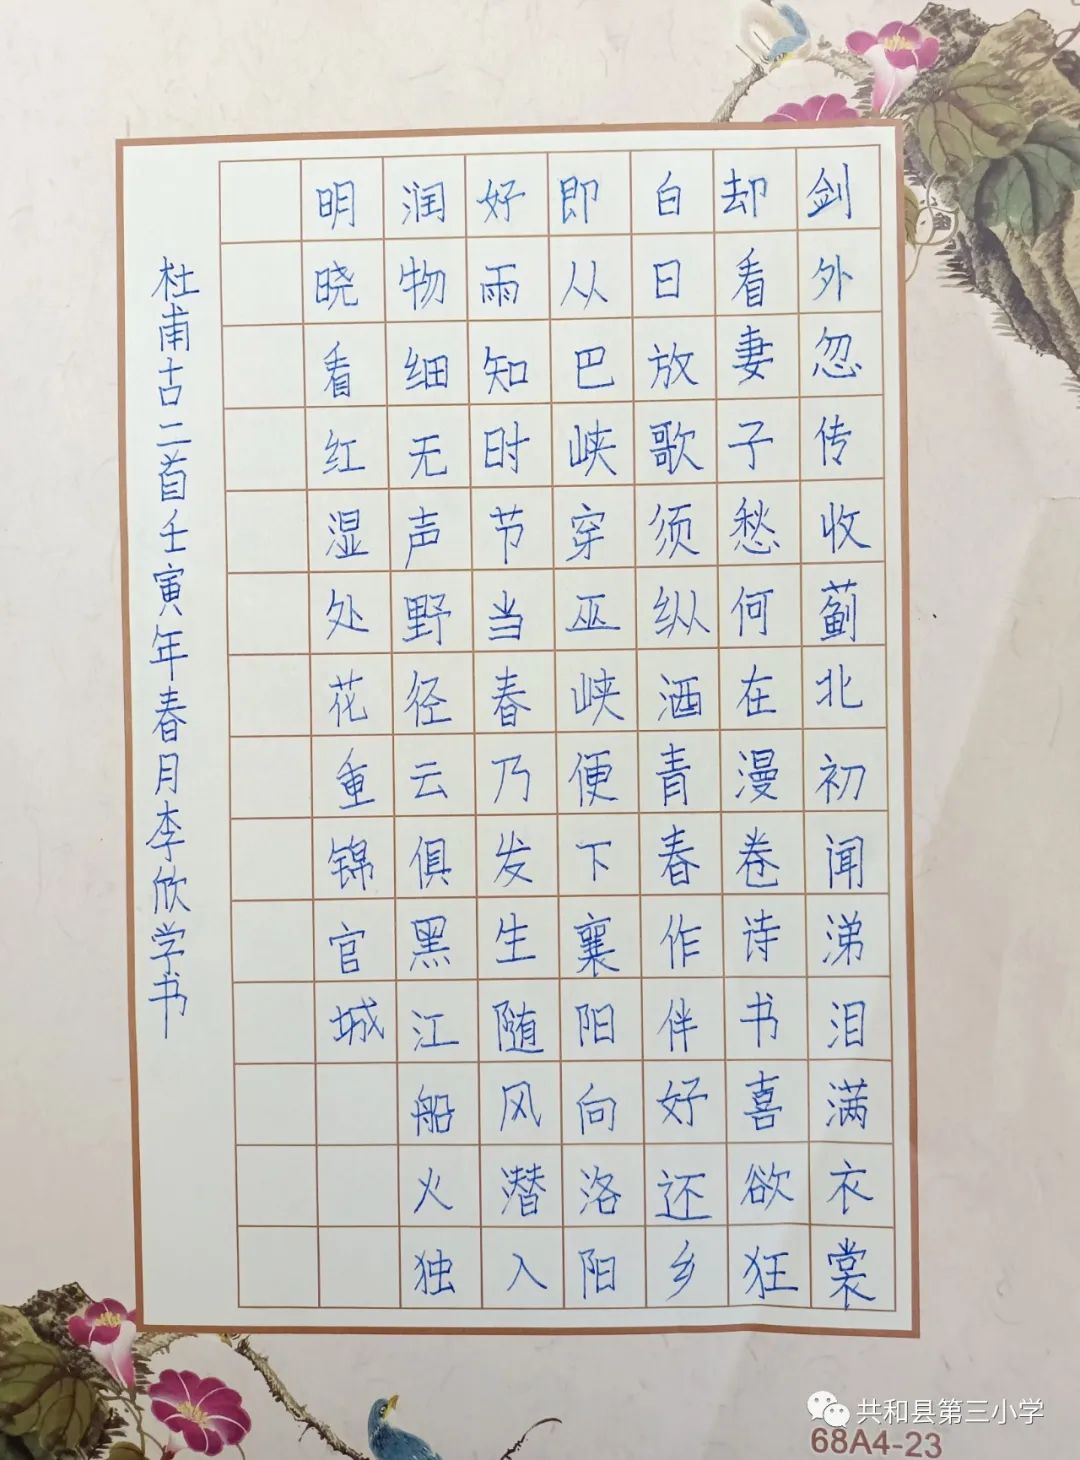 剑外忽传收蓟北初闻涕泪满衣裳
却看妻子愁何在漫卷诗书喜欲狂
白日放歌须纵洒青春作伴好还乡
即从巴峡穿巫峡便下襄阳向洛阳
好雨知时节当春乃发生随风潜入
润物细无声野径云俱黑江船火独
明晓看红湿处花重锦官城
杜甫古二首壬寅年春月李欣学书
共和县第三小学
68A4-23